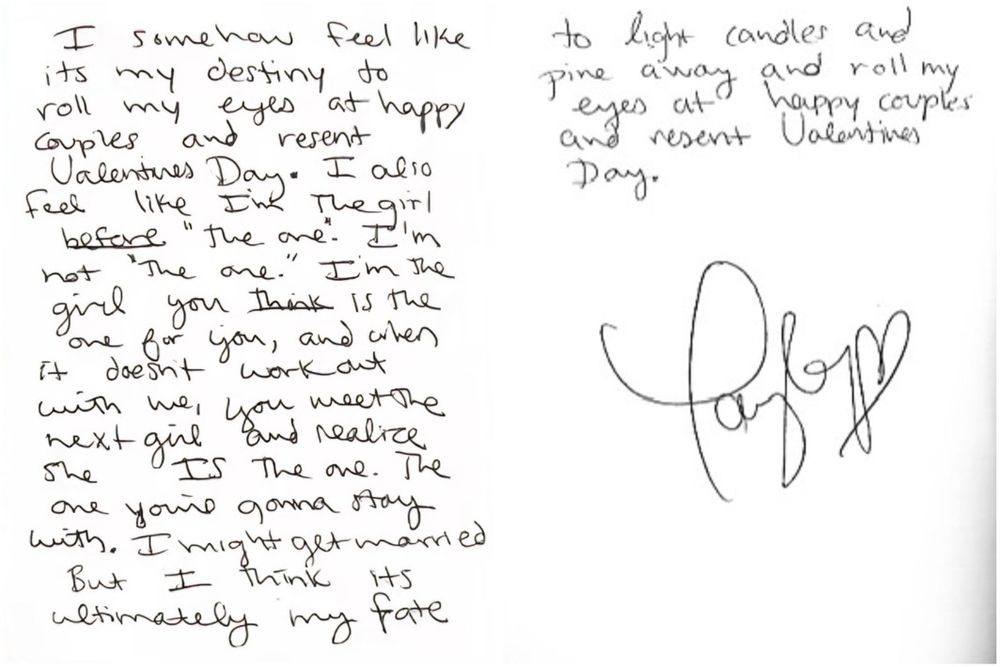 I somehow feel like
its my destiny to
roll my eyes at happy
couples and resent
Valentines Day. I also
feel like I'm the girl
before "the one". I'm
not "the one." I'm the
girl you think is the
one for you, and when
it doesn't work out
with me, you meet the
next girl and realize
she IS the one. The
one you're gonna stay
with. I might get married
But I think its
ultimately my fate
to light candles and
pine away and roll my
eyes at happy couples
and resent Valentines
Day.
Taylor